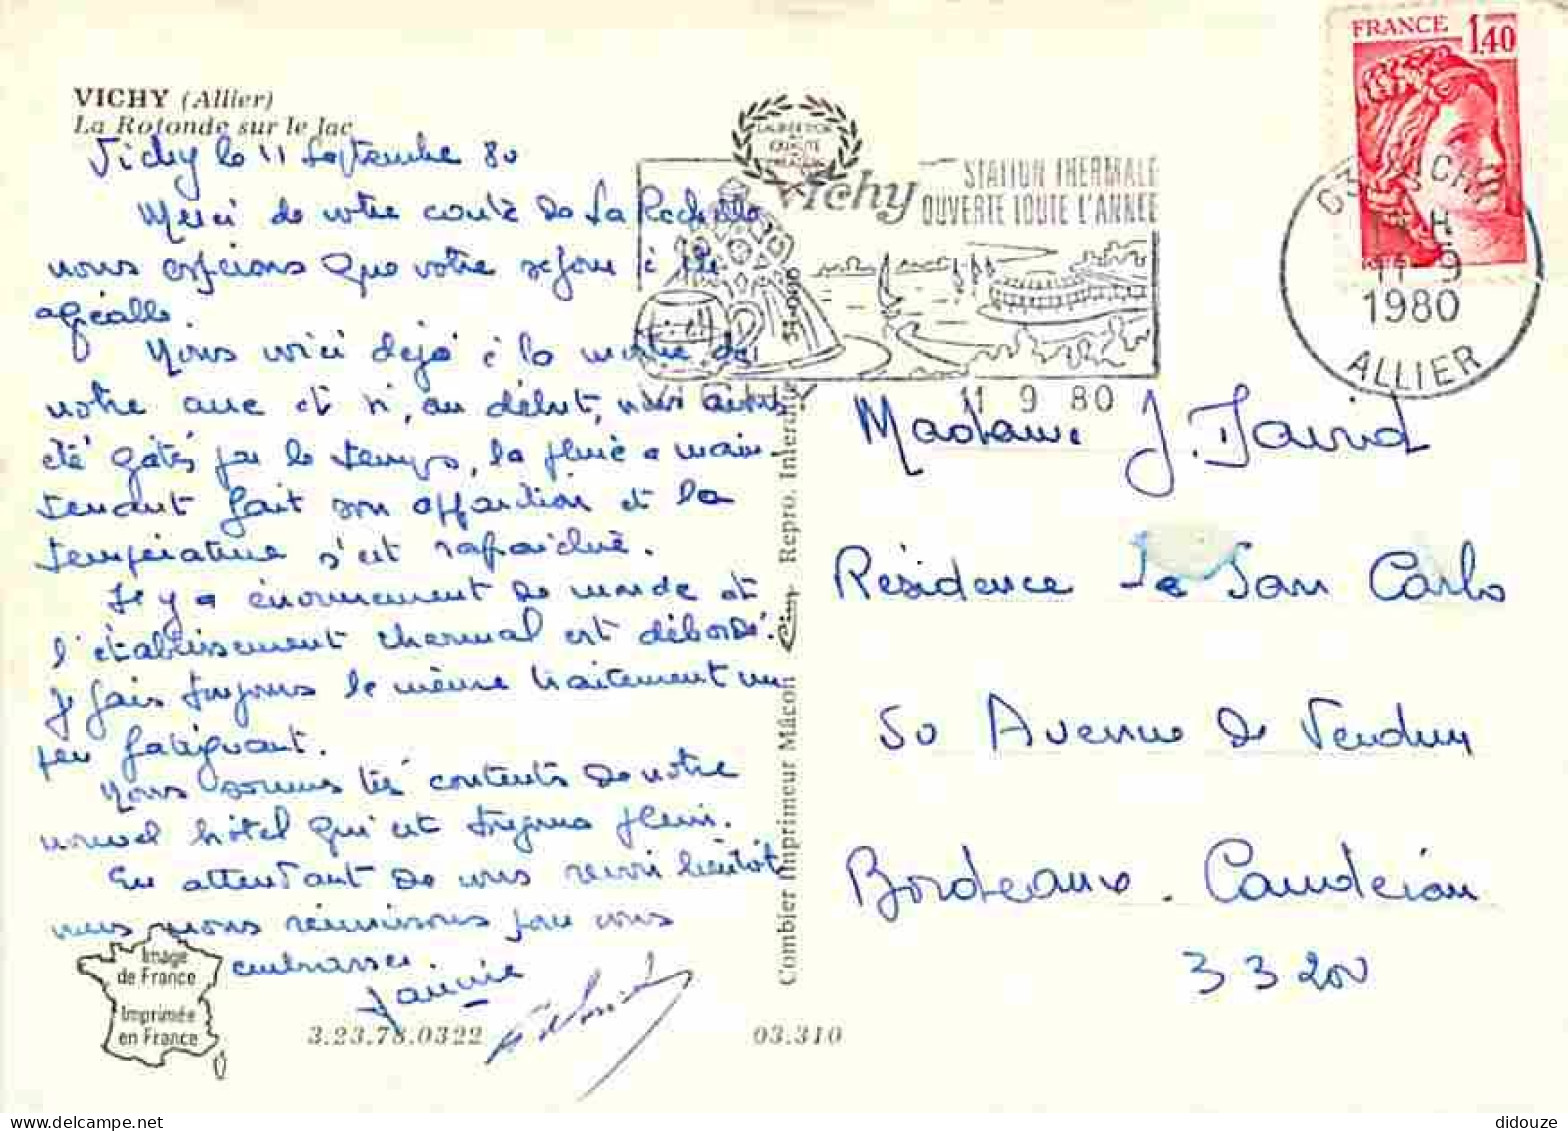 VICHY (Allier)
La Rotonde sur le lac
Vichy le 11 Septembre 80
Merci de votre carte de La Rochelle
nous espérons que votre séjour a été
agréable
Nous voici déjà à la moitié de
notre cure et si, au début, nous avons
été gâtés par le temps, la pluie a main-
tenant fait son apparition et la
température s'est rafraîchie.
Il y a énormément de monde et
l'établissement thermal est débordé.
Je fais toujours le même traitement un
peu fatiguant.
Nous sommes très contents de notre
nouvel hôtel qui est toujours plein.
En attendant de vous revoir bientôt
nous nous réunissons pour vous
embrasser
Jannie
Image
de France
Imprimée
en France
3.23.78.0322
03.310
Combier Imprimeur Mâcon Cim Repro. Interdite
Vichy
STATION THERMALE
OUVERTE TOUTE L'ANNÉE
34-000
VICHY
11 9 80
FRANCE 1,40
03 VICHY
H
11-9
1980
ALLIER
Madame J. David
Résidence Le San Carlo
50 Avenue de Verdun
Bordeaux. Caudéran
33200
didouze